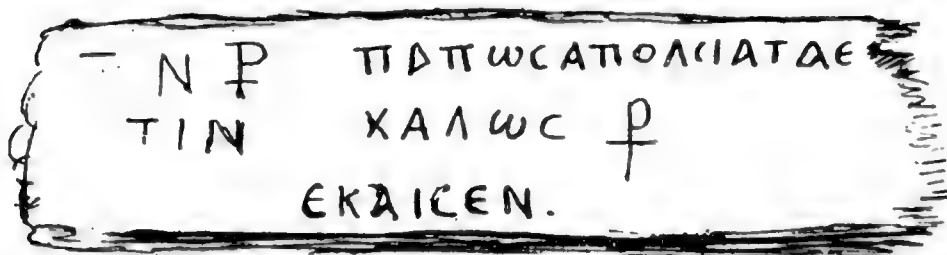 – Ν ⳨ ΠΑΠΩϹΑΠΟΛΙΙΑΤΑΕ
ΤΙΝ ΧΑΛΩϹ ⳨
ΕΚΑΙϹΕΝ.